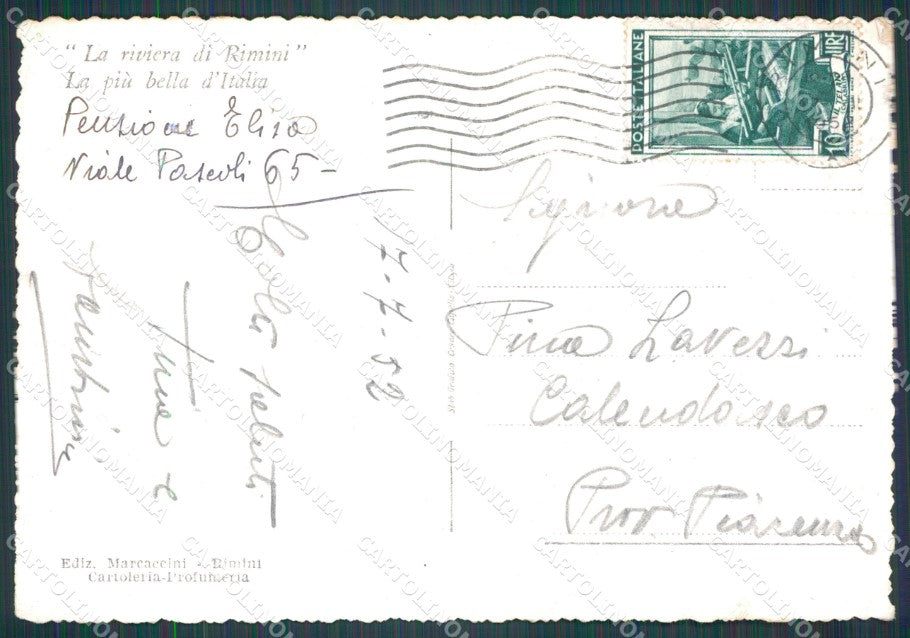 " La riviera di Rimini "
La più bella d'Italia
Pensione Elisa
Viale Pascoli 65 -
17-7-52
saluti
Pina e
POSTE ITALIANE
LIRE
10
Signora
Pina Lavezzi
Calendasco
Prov Piacenza
Ediz. Marcaccini - Rimini
Cartoleria-Profumeria
CARTOLINOMANIA